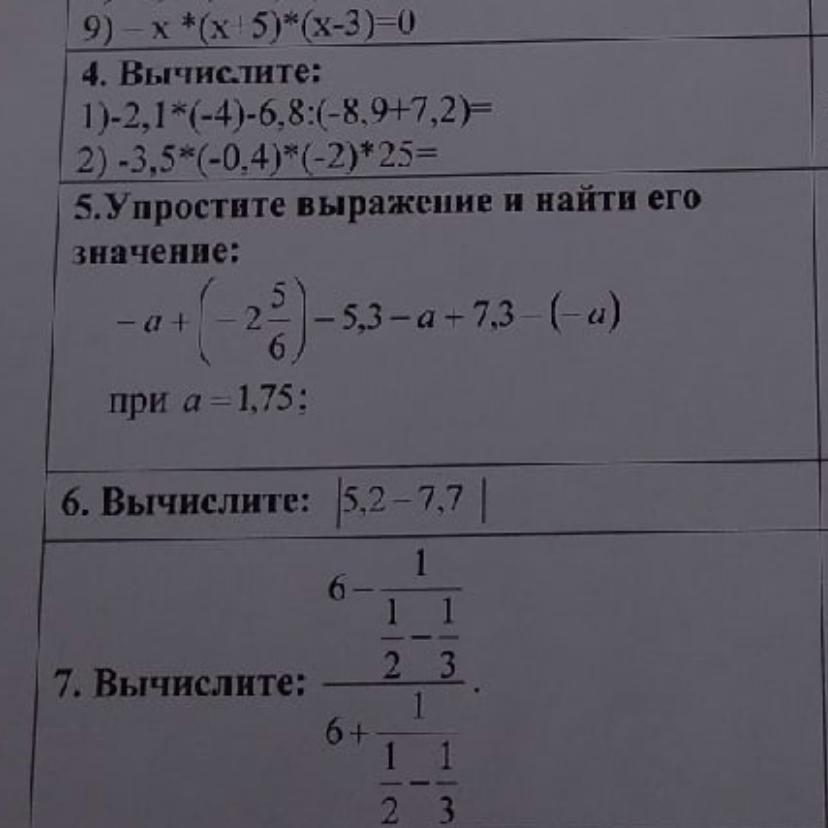 9) – х *(х+5)*(х-3)=0
4. Вычислите:
1)-2,1*(-4)-6,8:(-8,9+7,2)=
2) -3,5*(-0,4)*(-2)*25=
5.Упростите выражение и найти его
значение:
– a + (– 2 5/6) – 5,3 – a + 7,3 – (– a)
при a = 1,75;
6. Вычислите: |5,2 – 7,7 |
7. Вычислите: (6 – 1/(1/2 – 1/3))/(6 + 1/(1/2 – 1/3)).